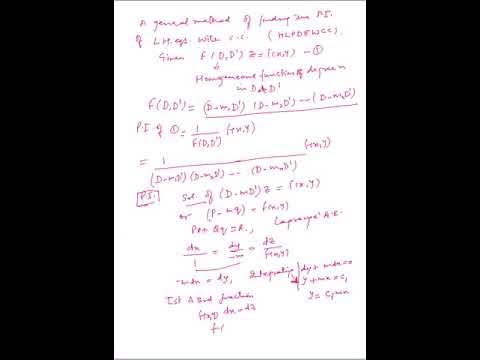 A general method of finding the P.I.
of L.H. eqs. with c.c. (HLPDEWCC).
Given F(D,D') Z = f(x,y) —①
Homogeneous function of degree n
in D & D'
F(D,D') = (D-m₁D') (D-m₂D') --- (D-mₙD')
P.I. of ① = 1/F(D,D') f(x,y)
= 1/((D-m₁D')(D-m₂D') --- (D-mₙD')) f(x,y)
P.I. Sol. of (D-mD') Z = f(x,y)
or (P-mq) = f(x,y)
Pp+Qq=R, Lagrange's A.E.
dx/1 = dy/-m = dz/f(x,y)
-mdx = dy, Integrating dy+mdx=0
y+mx = c₁
Ist & 3rd fraction y = c₁-mx
f(x,y) dx = dz
f(